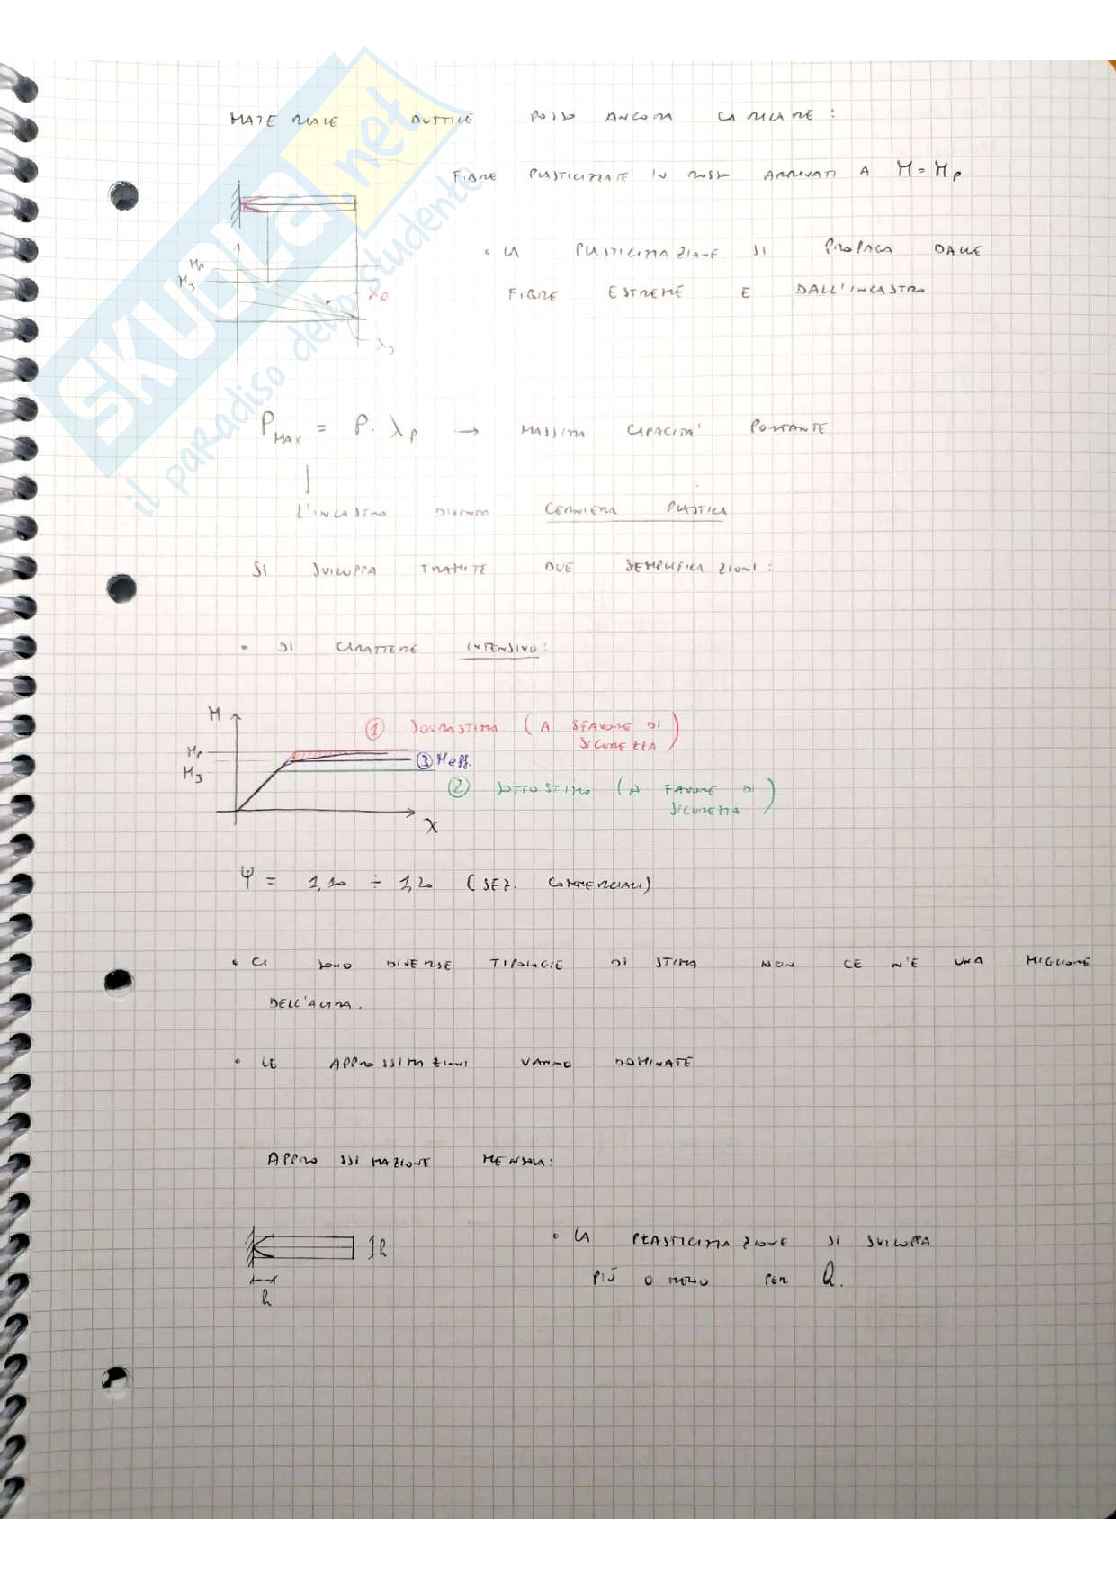 MATERIALE DUTTILE POSSO ANCORA CARICARE:
FIBRE PLASTICIZZATE IN ROSSO ARRIVATI A M = Mp
• LA PLASTICIZZAZIONE SI PROPAGA DALLE
FIBRE ESTREME E DALL'INCASTRO
Mp
My
λp
λy
P MAX = P · λp → MASSIMA CAPACITA' PORTANTE
L'INCASTRO DIVENTA CERNIERA PLASTICA
SI SVILUPPA TRAMITE DUE SEMPLIFICAZIONI:
• DI CARATTERE INTENSIVO:
M
① SOVRASTIMA (A SFAVORE DI
SICUREZZA)
Mp
③ Meff.
My
② SOTTOSTIMO (A FAVORE DI
SICUREZZA)
χ
Ψ = 1,10 ÷ 1,2 (SEZ. COMMERCIALI)
• CI SONO DIVERSE TIPOLOGIE DI STIMA NON CE N'È UNA MIGLIORE
DELL'ALTRA.
• LE APPROSSIMAZIONI VANNO NOMINATE
APPROSSIMAZIONE MENSOLA:
h
h
• LA PLASTICIZZAZIONE SI SVILUPPA
PIÙ O MENO PER h.
SKUOLA.net
il paradiso dello studente